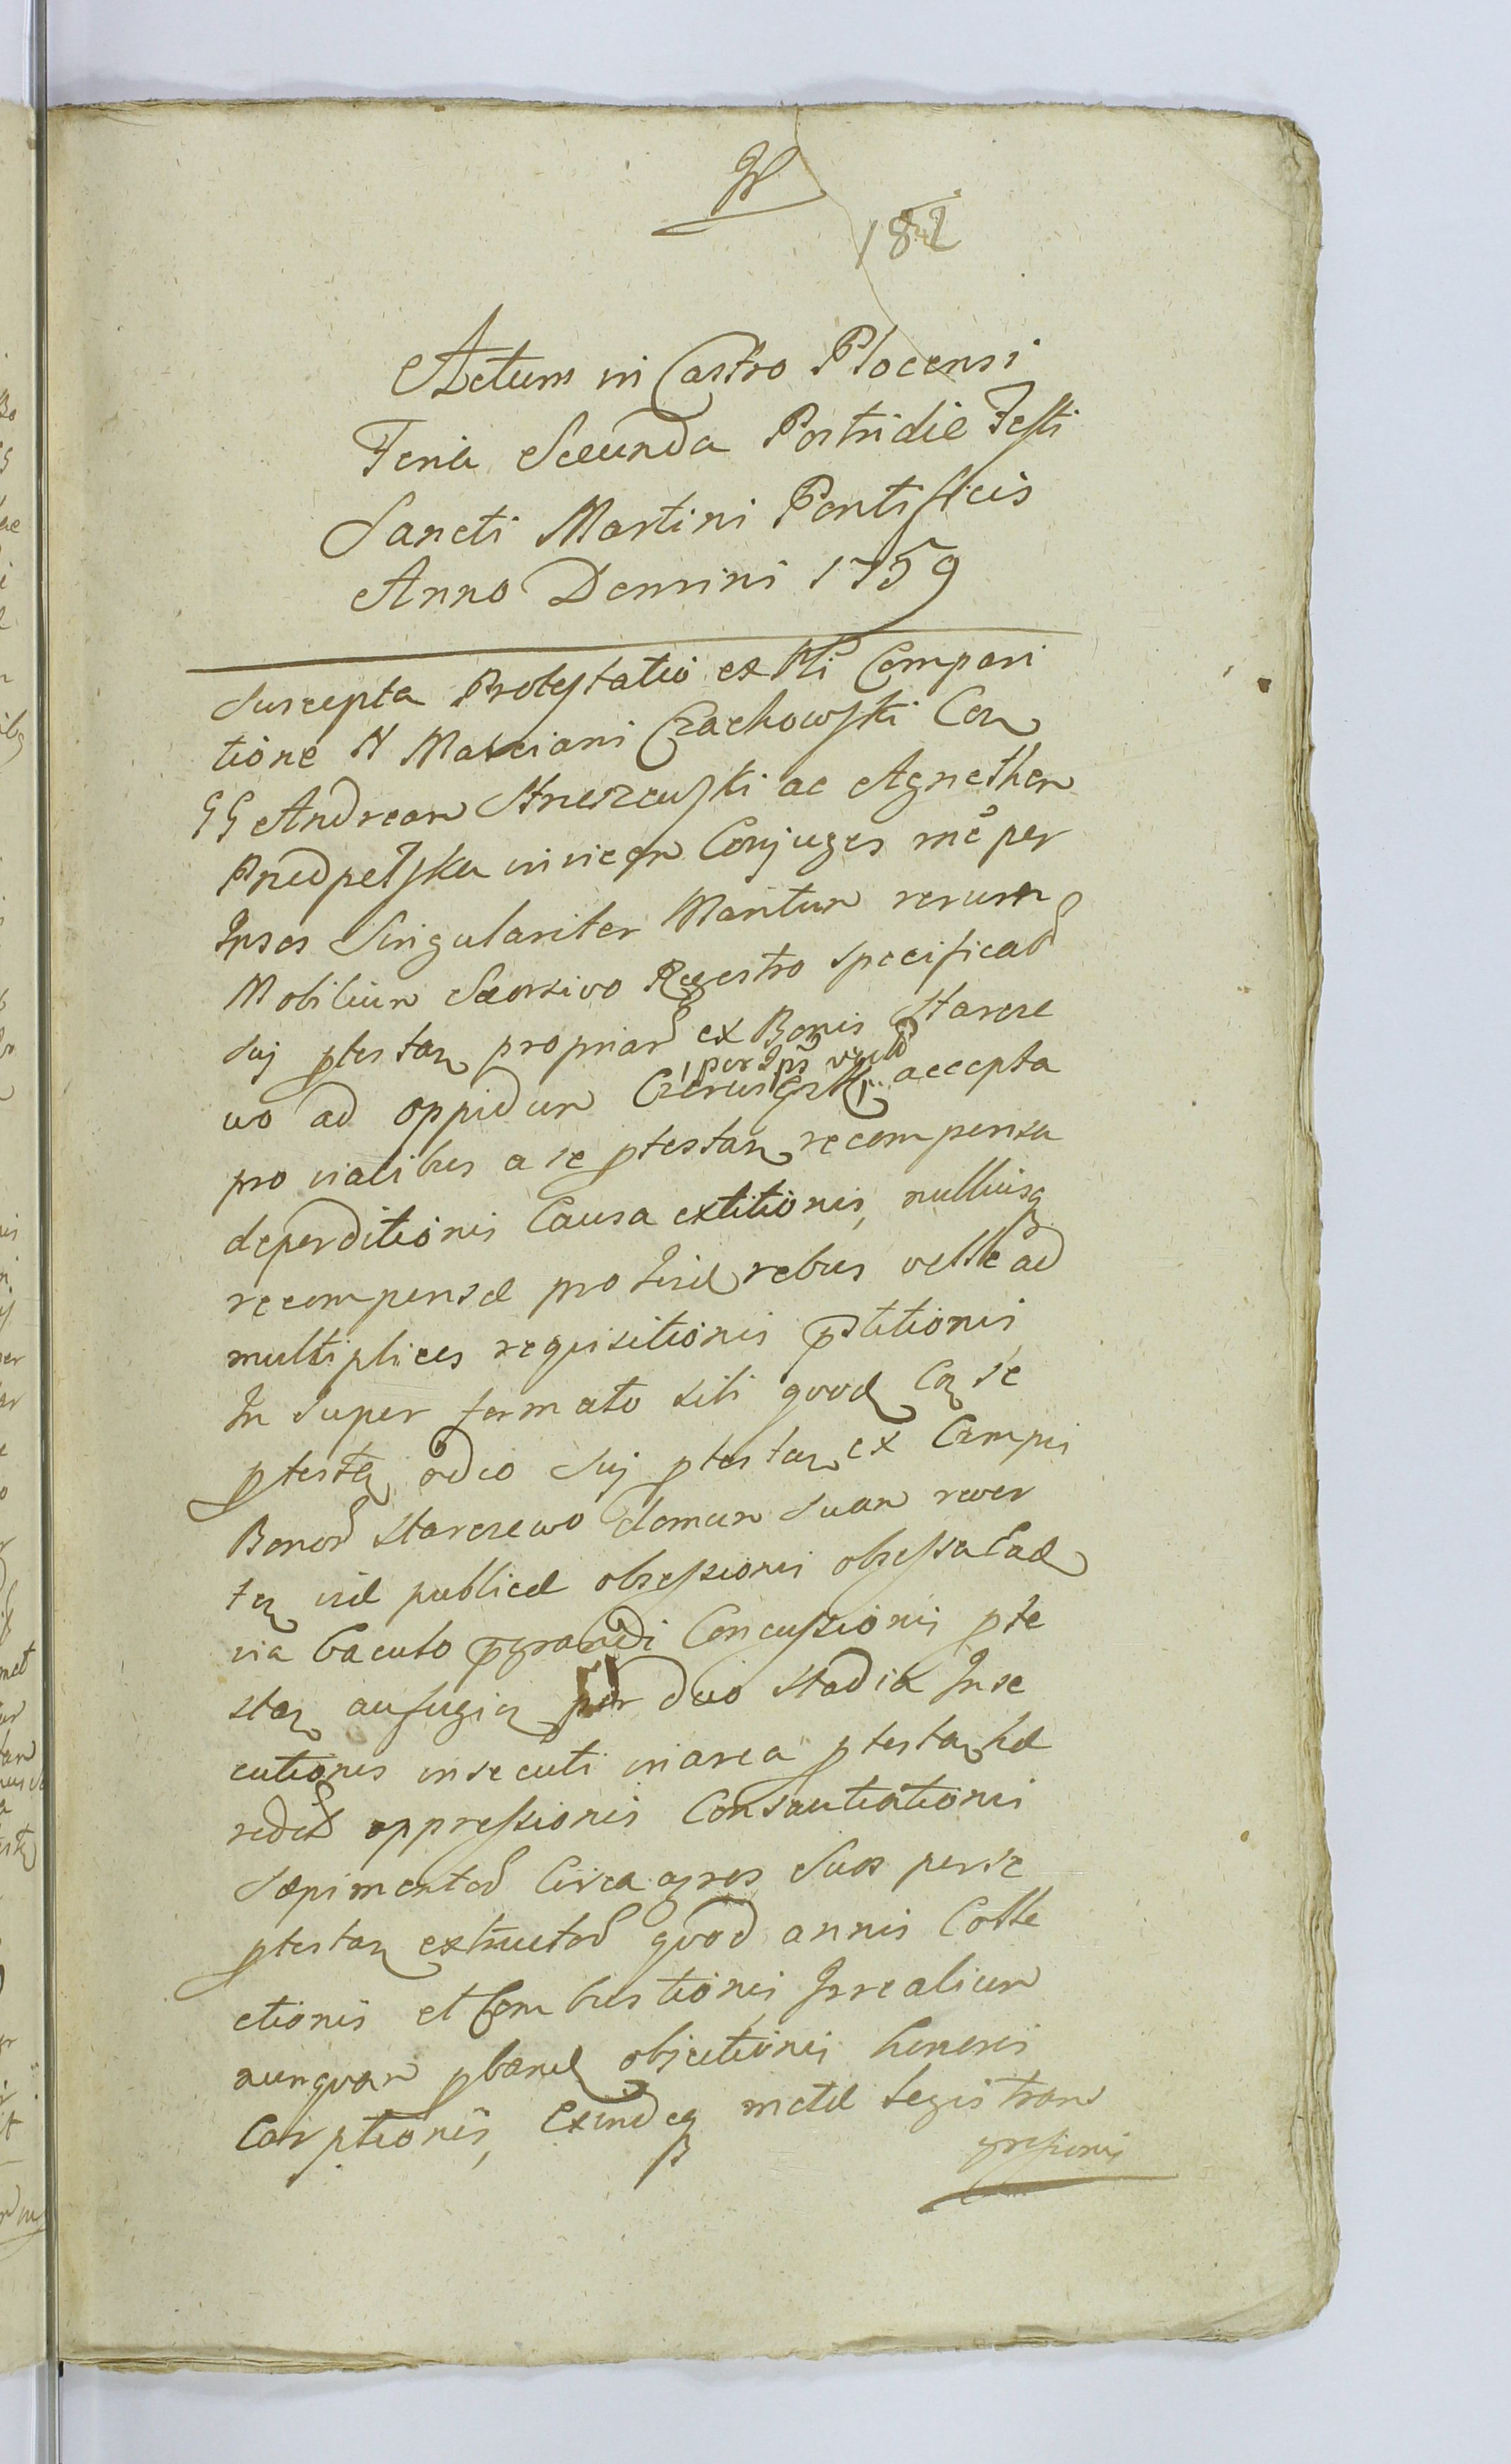 182
Actum in Castro Plocensi
Feria Secunda Postridie Festi
Sancti Martini Pontificis
Anno Domini 1759
Suscepta Protestatio ex Pli Compari
tione N Marciani Czachowski Con
GG Andream ac Agnethen
invicem Conjuges per
Ipsos Singulariter Maritum rerum
Mobilium Seorsivo Regestro specificat
Suj ptestan propriar ex Bonis Starcze
wo ad oppidum accepta
pro vialibus a se ptestan recompensa
deperditionis Causa extitionis, nulliusq
recompensæ pro iisd rebus velle ad
multiplices requisitionis pstitionis
In super formato sibi quod Con se
ptestan odio Suj ptestan ex Campis
Bonor Starczewo domum suam rever
ten viæ publicæ obsessionis obsessa Ead
via baculo pgrandi Concussionis pte
stan aufugien per duo stadia Inse
cutionis insecuti in area ptestan hæ
redit oppressionis Consautiationis
Sæpimentor Circa agros Suos per se
ptestan extructor quod annis Colle
ctionis et Combustionis Irrealium
nunquam pband objectionis honoris
Carptionis, Exindeq metæ legis trans
gressionis